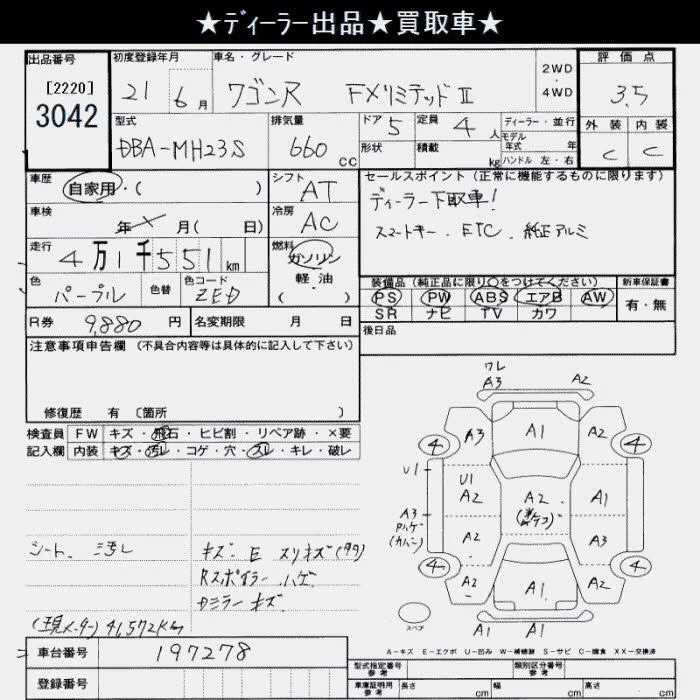 ★ディーラー出品★買取車★
出品番号
[2220]
3042
初度登録年月
21 6月
車名・グレード
ワゴンR FXリミテッドⅡ
2WD・4WD
評価点
3.5
外装 内装
C C
型式
DBA-MH23S
排気量
660 cc
ドア 5
形状
定員 4人
積載 kg
ディーラー・並行
モデル年式 年
ハンドル 左・右
車歴
自家用・( )
シフト
AT
セールスポイント(正常に機能するものに限ります)
ディーラー下取車!
スマートキー、ETC、純正アルミ
車検
年 月( 日)
冷房
AC
走行
4万1千551km
燃料
ガソリン・軽油
( )
色
パープル
色替
色コード
ZED
装備品(純正品に限り○をつけてください) 新車保証書
PS PW ABS エアB AW 有・無
SR ナビ TV カワ
R券 9,880円 名変期限 月 日
後日品
注意事項申告欄(不具合内容等は具体的に記入して下さい)
修復歴 有〔箇所 〕
検査員記入欄
FW キズ・飛石・ヒビ割・リペア跡・×要
内装 キズ・汚レ・コゲ・穴・スレ・キレ・破レ
ワレ
A3 A2
4 A3 A1 A2 4
U1
U1 A2 A2 A1
A3
A2 A3
4 A2 A1 A2 4
スペア
A1 A1
シート、汚レ
キズ E スリキズ
Rスポイラー ハゲ
キズ
(現メーター) 41,572km
A-キズ E-エクボ U-凹み W-補修跡 S-サビ C-腐食 XX-交換済
車台番号 197278
登録番号
型式指定番号参考 類別区分番号参考
車庫証明用参考 長さ cm 幅 cm 高さ cm